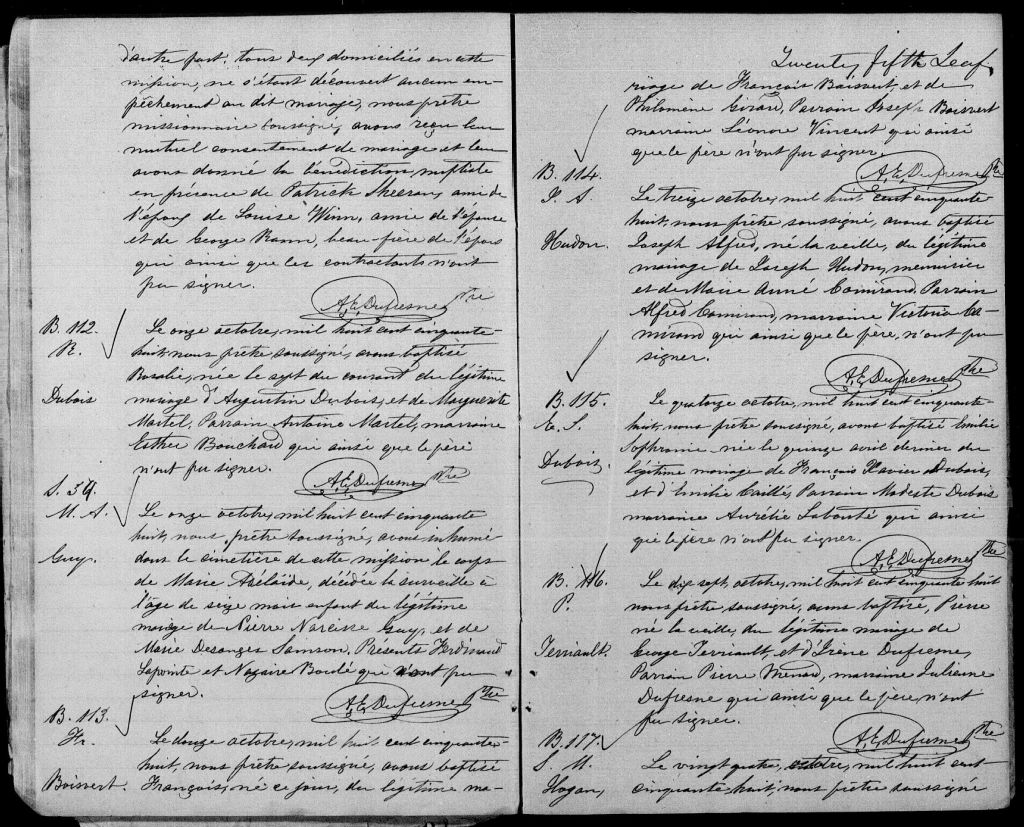 d'autre part, tous deux domiciliés en cette
mission, ne s'étant découvert aucun em-
pêchement au dit mariage, nous prêtre
missionnaire soussigné, avons reçu leur
mutuel consentement de mariage et leur
avons donné la bénédiction nuptiale
en présence de Patrick Sheeran, ami de
l'époux de Louise Winn, amie de l'épouse
et de George Rann, beau-frère de l'époux
qui ainsi que les contractants n'ont
pu signer.
A.E. Dufresne Ptre
B. 112.
R.
Dubois
Le onze octobre, mil huit cent cinquante-
huit, nous prêtre soussigné, avons baptisé
Rosalie, née le sept du courant du légitime
mariage d'Augustin Dubois, et de Marguerite
Martel, Parrain Antoine Martel, marraine
Esther Bouchard qui ainsi que le père
n'ont pu signer.
A.E. Dufresne Ptre
S. 39.
M. A.
Guy.
Le onze octobre, mil huit cent cinquante
huit, nous, prêtre soussigné, avons inhumé
dans le cimetière de cette mission le corps
de Marie Adélaïde, décédée la surveille à
l'âge de seize mois enfant du légitime
mariage de Pierre Narcisse Guy, et de
Marie Desanges Samson, Présents Ferdinand
Lapointe et Nazaire Boulé qui n'ont pu
signer.
A.E. Dufresne Ptre
B. 113.
Fr.
Boisvert.
Le douze octobre, mil huit cent cinquante-
huit, nous prêtre soussigné, avons baptisé
François, né ce jour, du légitime ma-
Twenty fifth Leaf
riage de François Boisvert, et de
Philomène Girard, Parrain Joseph Boisvert
marraine Léonore Vincent qui ainsi
que le père n'ont pu signer.
A.E. Dufresne Ptre
B. 114.
J. A.
Hudon.
Le treize octobre, mil huit cent cinquante
huit, nous prêtre soussigné, avons baptisé
Joseph Alfred, né la veille, du légitime
mariage de Joseph Hudon, menuisier
et de Marie Anne Camirand. Parrain
Alfred Camirand, marraine Victoria Ca-
mirand qui ainsi que le père, n'ont pu
signer.
A.E. Dufresne Ptre
B. 115.
E. S.
Dubois.
Le quatorze octobre, mil huit cent cinquante-
huit, nous prêtre soussigné, avons baptisé Emilie
Sophronie née le quinze avril dernier du
légitime mariage de François Xavier Dubois,
et d'Emilie Caillé, Parrain Modeste Dubois
marraine Aurélie Labonté qui ainsi
que le père n'ont pu signer.
A.E. Dufresne Ptre
B. 116.
P.
Terriault.
Le dix sept, octobre, mil huit cent cinquante huit
nous prêtre soussigné, avons baptisé, Pierre
né la veille, du légitime mariage de
George Terriault, et d'Irène Dufresne,
Parrain Pierre Menard, marraine Julienne
Dufresne qui ainsi que le père, n'ont
pu signer.
A.E. Dufresne Ptre
B. 117.
S. M.
Hogan,
Le vingt quatre, octobre, mil huit cent
cinquante huit, nous prêtre soussigné